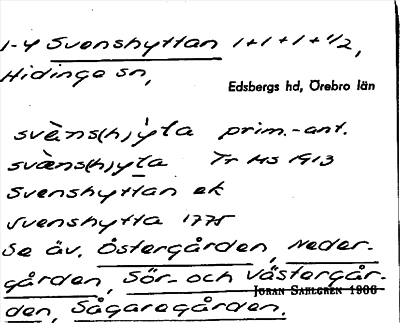 1-4 Svenshyttan 1+1+1+1/2,
Hidinge sn,
Edsbergs hd, Örebro län
svѐns(h)ỳta prim.-ant.
svѐns(h)yta Tr Hs 1913
Svenshyttan ek
Svenshytta 1775
Se äv. Östergården, Neder-
gården, Sör- och Västergår-
den, Sågaregården.
JÖRAN SAHLGREN 1906